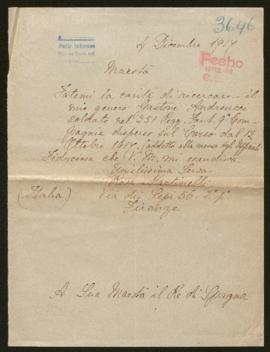 3696
4 Dicembre 1917
Maestà
Fatemi la carità di ricercare il
mio genero Gastone Andreucci
soldato nel 251 Regg. Fant. 9ª Com
pagnia disperso sul Carso dal 12
Ottobre 1917. (addetto alla mensa degli Ufficiali
Fiduciosa che V. M. mi esaudirà
Umilissima Serva
Rosa Martinelli
(Italia) Via dei Pepi 56. P. T.
Firenze
A Sua Maestà il Re di Spagna